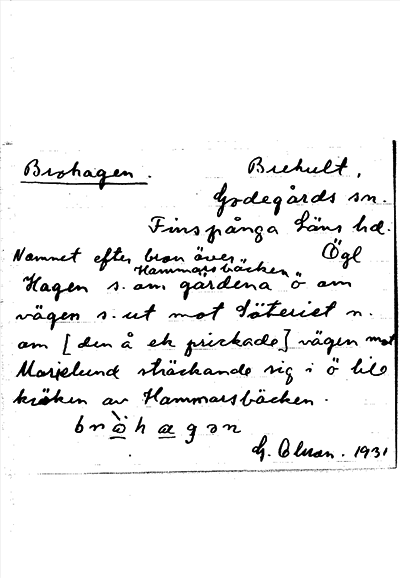 Brohagen. Brehult,
Godegårds sn.
Finspånga Läns hd.
Namnet efter bron över Ögl
Hammarsbäcken
Hagen s. om gårdena ö om
vägen s. ut mot Säteriet n.
om [den å ek prickade] vägen mot
Marielund sträckande sig i ö til
kröken av Hammarsbäcken.
G. 1931